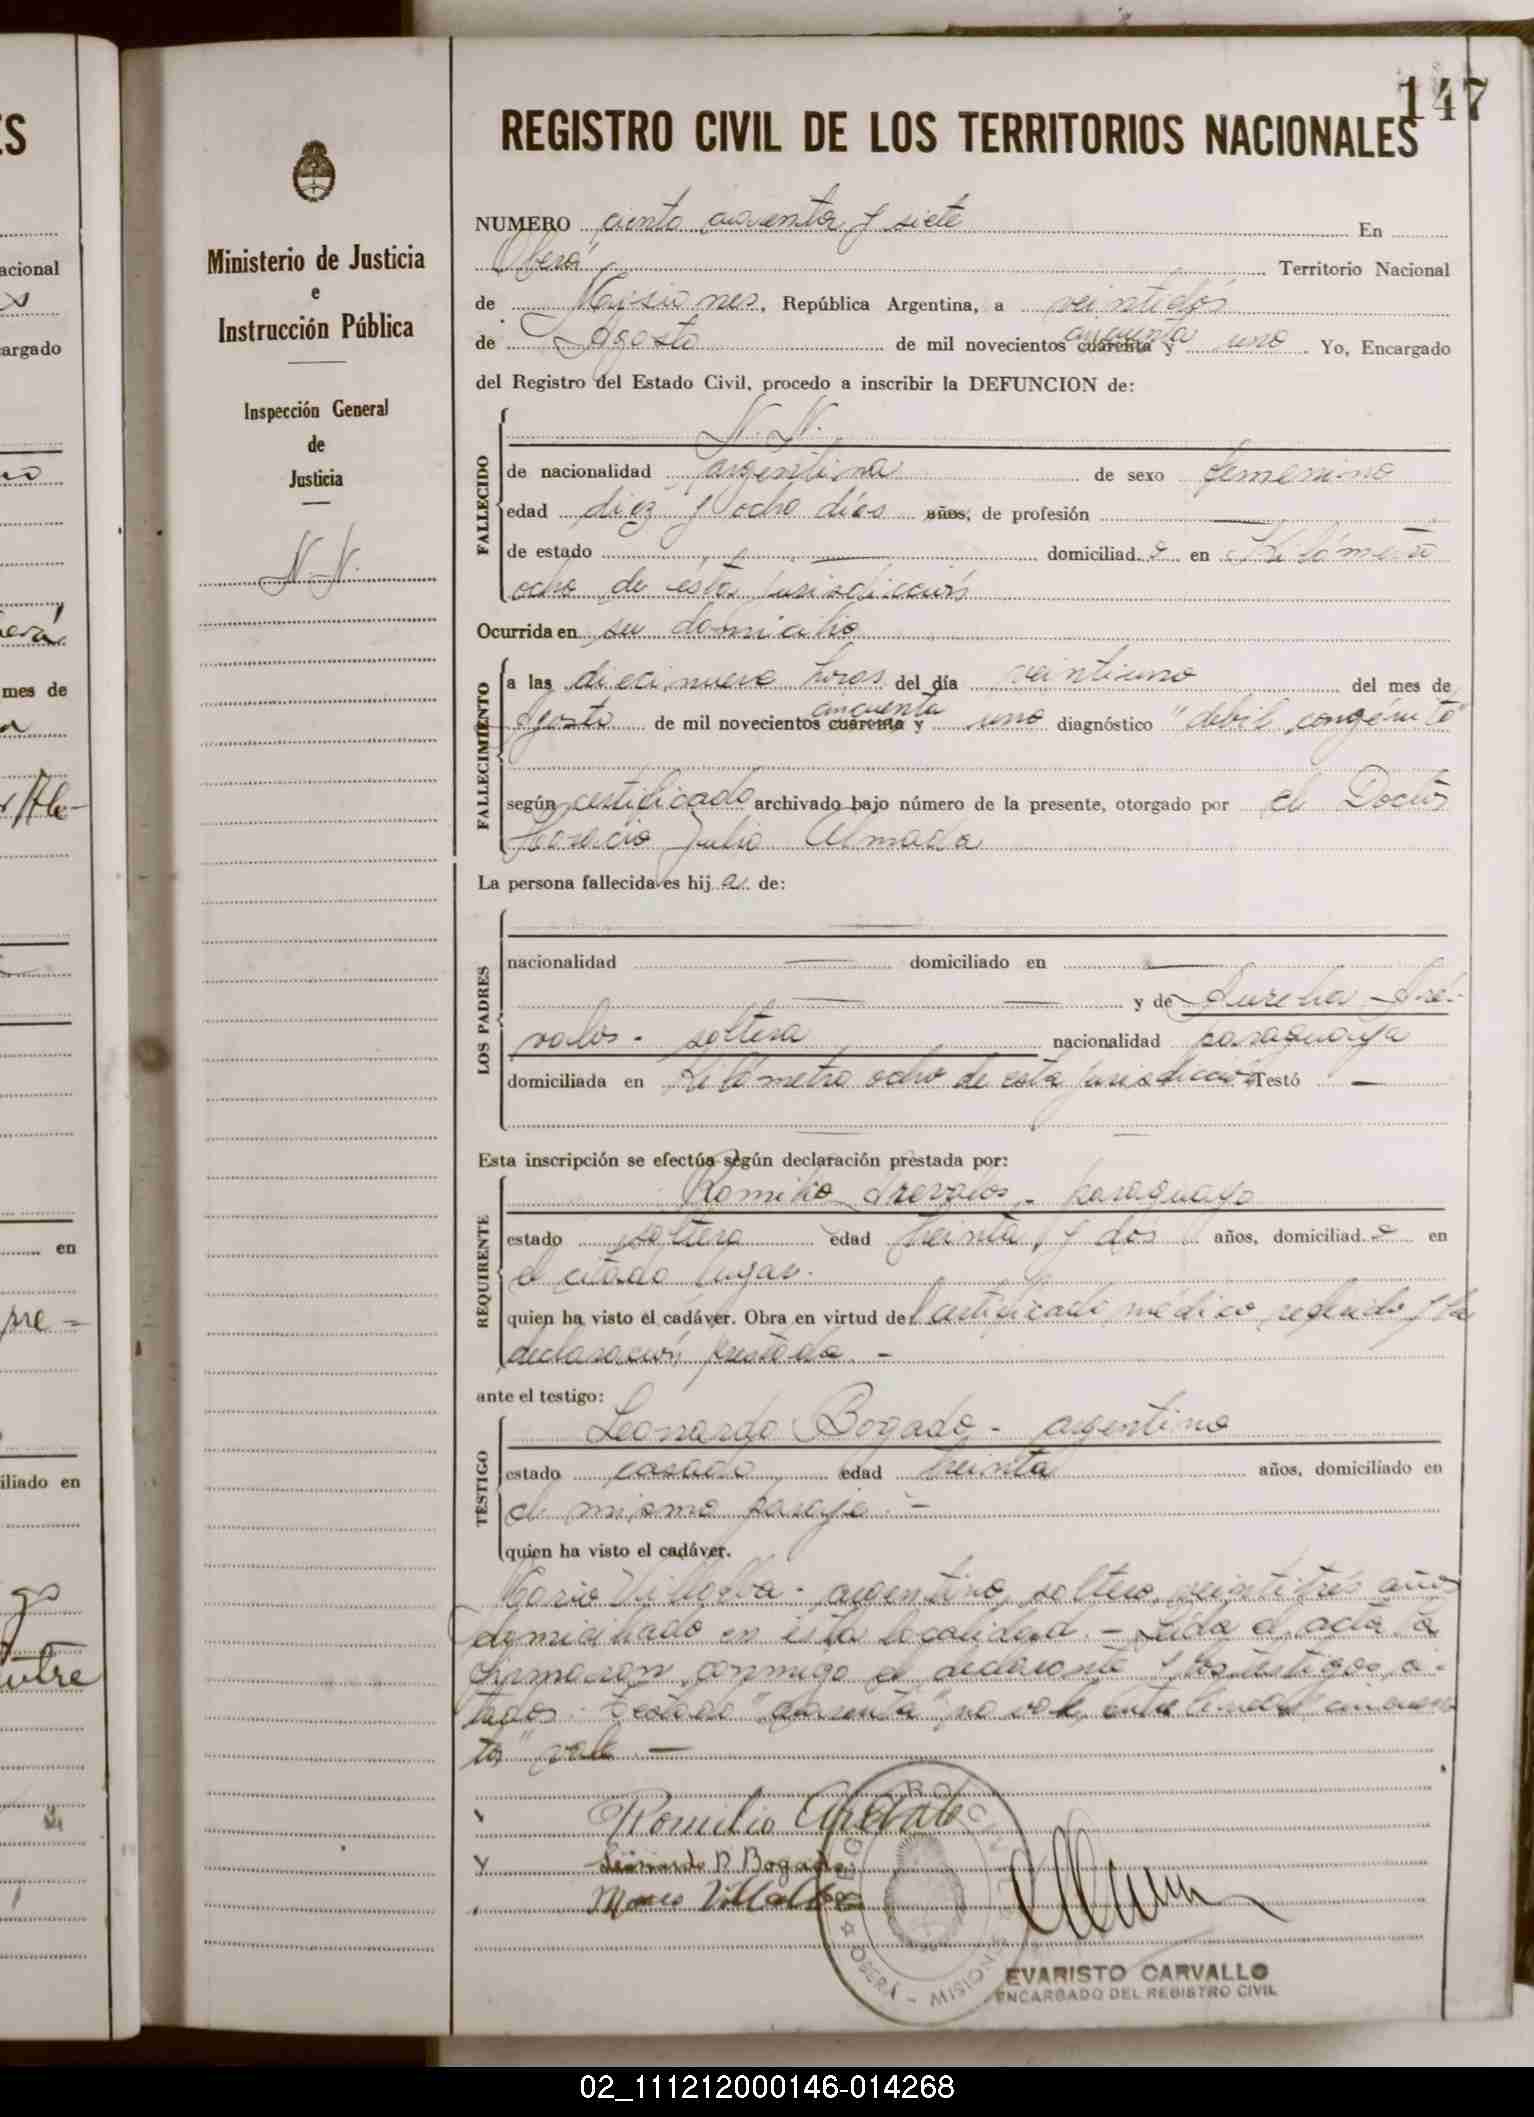 147
REGISTRO CIVIL DE LOS TERRITORIOS NACIONALES
Ministerio de Justicia
e
Instrucción Pública
Inspección General
de
Justicia
N. N.
NUMERO ciento cuarenta y siete En
Oberá Territorio Nacional
de Misiones, República Argentina, a veintidós
cincuenta
de Agosto de mil novecientos cuarenta y uno. Yo, Encargado
del Registro del Estado Civil, procedo a inscribir la DEFUNCION de:
FALLECIDO
N. N.
de nacionalidad argentina de sexo femenino
edad diez y ocho días años, de profesión —
de estado — domiciliad.a en Kilómetro
ocho de esta jurisdicción
Ocurrida en su domicilio
FALLECIMIENTO
a las diecinueve horas del día veintiuno del mes de
cincuenta
Agosto de mil novecientos cuarenta y uno diagnóstico "debil congénito"
según certificado archivado bajo número de la presente, otorgado por el Doctor
Horacio Julio Almada
La persona fallecida es hij a de:
LOS PADRES
—
nacionalidad — domiciliado en —
— — y de Aurelia Aré-
valos - soltera nacionalidad paraguaya
domiciliada en Kilómetro ocho de esta jurisdicción Testó —
Esta inscripción se efectúa según declaración prestada por:
REQUIRENTE
Romilio Arevalos - paraguayo
estado soltero edad treinta y dos años, domiciliad.o en
el citado lugar.
quien ha visto el cadáver. Obra en virtud del certificado médico referido y la
declaración prestada. -
ante el testigo:
TESTIGO
Leonardo Bogado - argentino
estado casado edad treinta años, domiciliado en
el mismo paraje. -
quien ha visto el cadáver.
Mario Villalba - argentino, soltero, veintitrés años
domiciliado en esta localidad. - Leída el acta la
firmaron conmigo el declarante y los testigos ci-
tados. Testado "cuarenta" no vale, entre lineas "cincuen
ta" vale. —
Romilio Arevalo
Leonardo B Bogado
Mario Villalba
REGISTRO CIVIL
OBERÁ - MISIONES
EVARISTO CARVALLO
ENCARGADO DEL REGISTRO CIVIL
ES
acional
argado
mes de
en
iliado en
02_111212000146-014268